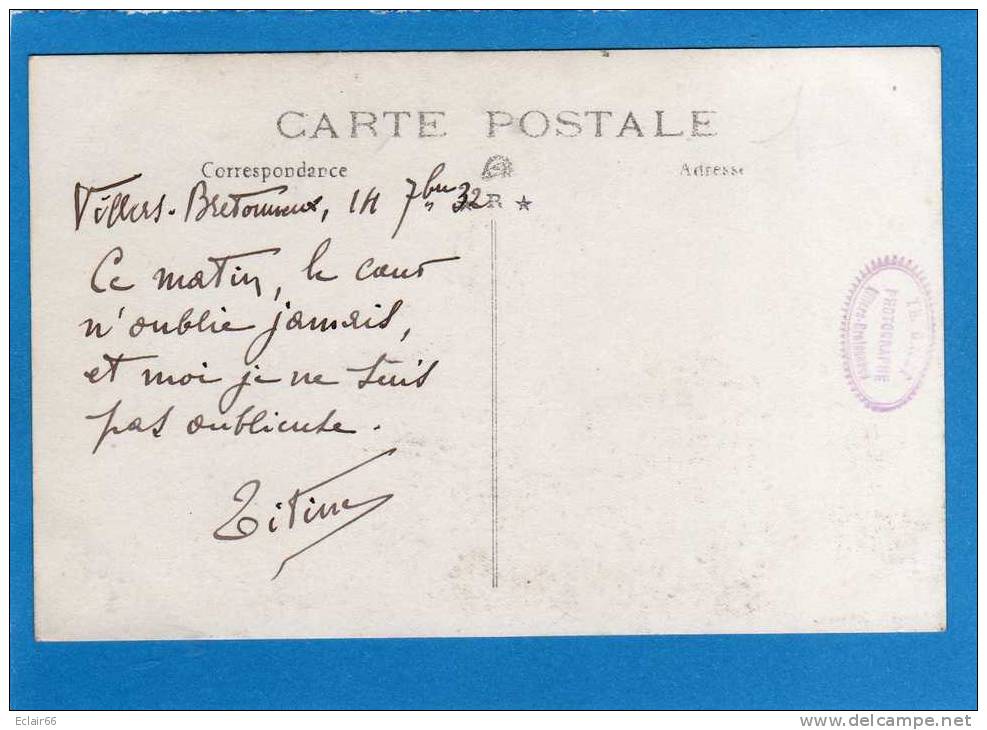 CARTE POSTALE
Correspondance
Adresse
R ★
Villers-Bretonneux, 14 7bre 32
Ce matin, le cœur
n'oublie jamais,
et moi je ne suis
pas oublieuse.
Titine
PHOTOGRAPHE
Villers-Bretonneux
Eclair66
www.delcampe.net